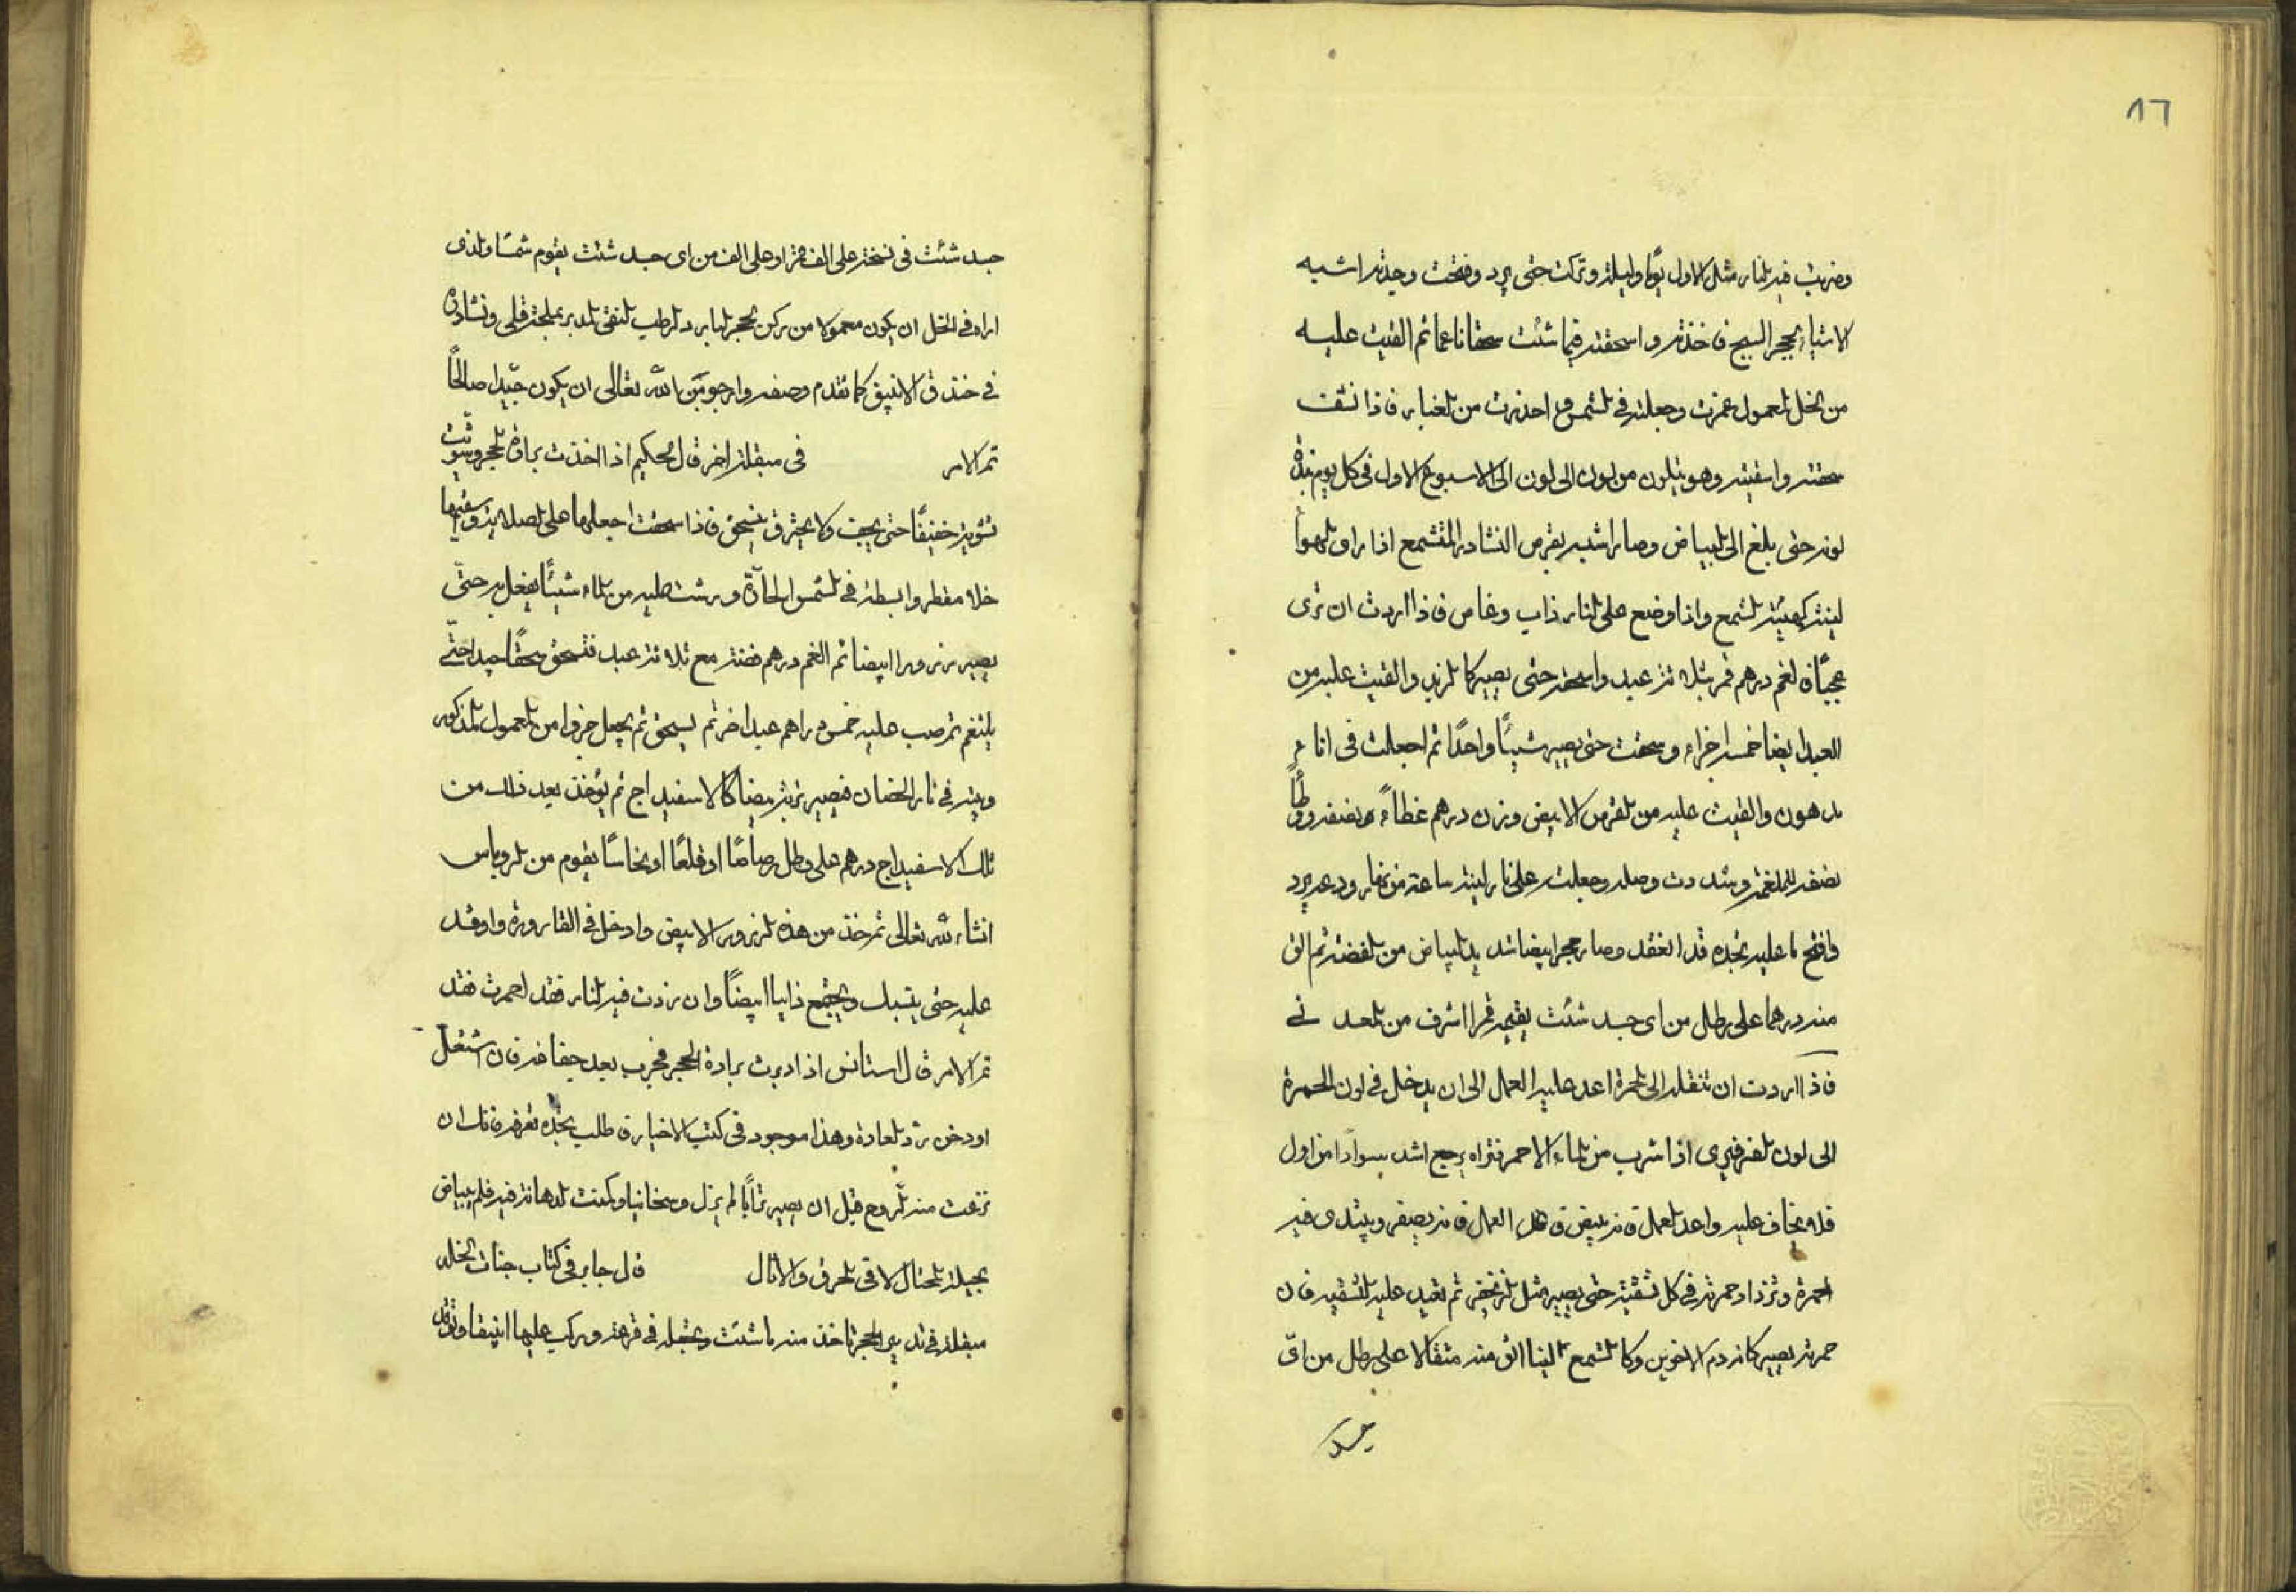 ٨٦
وضربت فيه بالنار مثل الاول يوما وليلة وتركت حتى يبرد وفتحت وجدته اشبه
الاشياء بحجر السبج فاخذته واسحقته فيما شئت سحقا ناعما ثم القيت عليه
من الخل المعمول غمرته وجعلته في الشمس واحذرت من الغبار فاذا نشف
سحقته واسقيته وهو يتلون من لون الى لون الى الاسبوع الاول في كل يوم
لونه حتى بلغ الى البياض وصار اشبه بقرص النشادر المتشمع اذا راق الهوا
لينته كهيئة الشمع واذا وضع على النار ذاب وغاص فاذا اردت ان ترى
عجبًا فالغم درهم قمر بثلاثة عبد واسحقه حتى يصير كالزبد والقيت عليه من
العبد ايضا خمسة اجزاء وسحقت حتى يصير شيئًا واحدًا ثم اجعلت في اناء
مدهون والقيت عليه من القرص الابيض وزن درهم غطاءً بنصفه ووطأً
بنصفه للملغمة وشددت وصله وجعلت على نار لينة ساعة من نهار ودعه يبرد
وافتح ما عليه تجده قد انعقد وصار حجرا ابيضا شديد البياض من الفضة ثم الق
منه درهما على رطل من اى جسد شئت يقيمه قمرا اشرف من المعدني
فاذا اردت ان تنقله الى الحمرة اعد عليه العمل الى ان يدخل في لون الحمرة
الى لون الفرفيري اذا شرب من الماء الاحمر فتراه يرجع اشد سوادًا من اول
فلا يخاف عليه واعد العمل فانه يبيض العمل فانه يصفر ويبتدى فيه
الحمرة وتزداد حمرته في كل تسقية حتى يصير مثل الزنجفر ثم تعيد عليه التسقية فان
حمرته يصير كانه دم الاخوين وكالشمع لينا الق منه مثقالا على رطل من اىّ
جسد
جسد شئت في نسخة على الف قمر او على الف من اى جسد شئت يقوم شمسًا والذى
اراه في الخل ان يكون معمولا من ركن الحجر البارد الرطب المنقى المدبر بملحة قلى ونشادره
في خندق الانبيق كما تقدم وصفه وارجو من الله تعالى ان يكون جيدا صالحًا
تم الامر في مبقلة اخر قال الحكيم اذا اخذت برادة الحجر وشويت
تشوية خفيفًا حتى يجف ولا يحترق ينسحق فاذا سحقت اجعلها على الصلاية وسقيها
خلا مقطر وابسطه في الشمس الحارّة ورشت عليه من الماء شيئًا يفعل به حتى
يصير زرورا ابيضا ثم الغم درهم فضة مع ثلاثة عبد فتسحق سحقًا جيدا حتى
يلتغم ثم صب عليه خمس دراهم عبد اخر ثم يسحق ثم يجعل جزوا من المعمول المذكور
وبيته في نار الحضان فيصير تربة بيضا كالاسفيداج ثم يؤخذ بعد ذلك من
تلك الاسفيداج درهم على رطل رصاصًا او قلعًا او نحاسًا يقوم من الروباس
انشاء الله تعالى ثم خذ من هذه الزرور الابيض وادخل في القارورة واوقد
عليه حتى يتسبك ويجتمع ذايبا ابيضًا وان زدت فيه النار فقد احمرت فقد
تم الامر قال استانس اذا دبرت برادة الحجر فجرب بعد جفافه فان اشتعل
او دخن ترد العادة وهذا موجود في كتب الاخبار فاطلب تجده تعرفه فانك ان
نزعت منه الروح قبل ان يصير ترابًا لم يزل وسخا نيا وكمنت الدهانة فيه فلم يبياض
بحيلة المحتال الا في الحرق والاثال قال جابر في كتاب جنات الخلد
مبقلة في تدبير الحجر تاخذ منه ما شئت وتجعله في قرعة وركب عليها انبيقا وتوقد